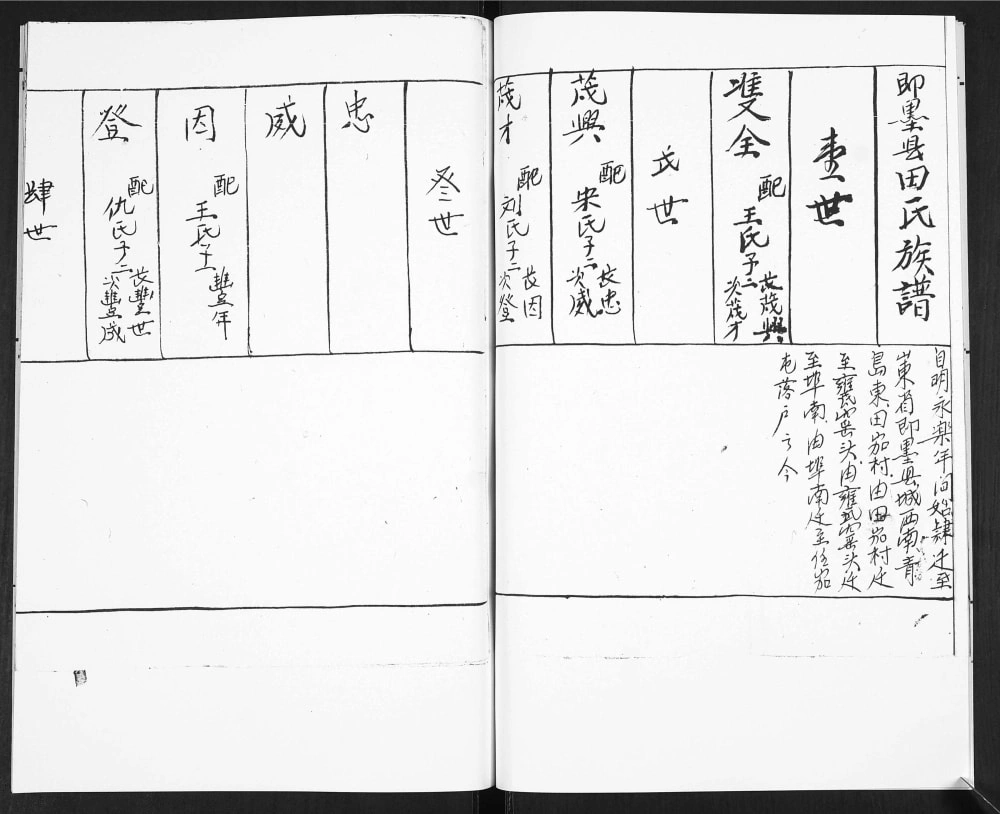 即墨县田氏族譜
壹世
雙全 配王氏子二 長茂興 次茂才
弍世
茂興 配宋氏子二 长忠 次威
茂才 配刘氏子二 长因 次登
叄世
忠
威
因 配王氏子 豐年
登 配仇氏子二 长豐世 次豐成
肆世
自明永樂年间始隸迁至
山東省即墨县城西南青
島東田茄村由田茄村迁
至甕窑头由甕窑头迁
至埠南由埠南迁至任茄
屯落户亐今